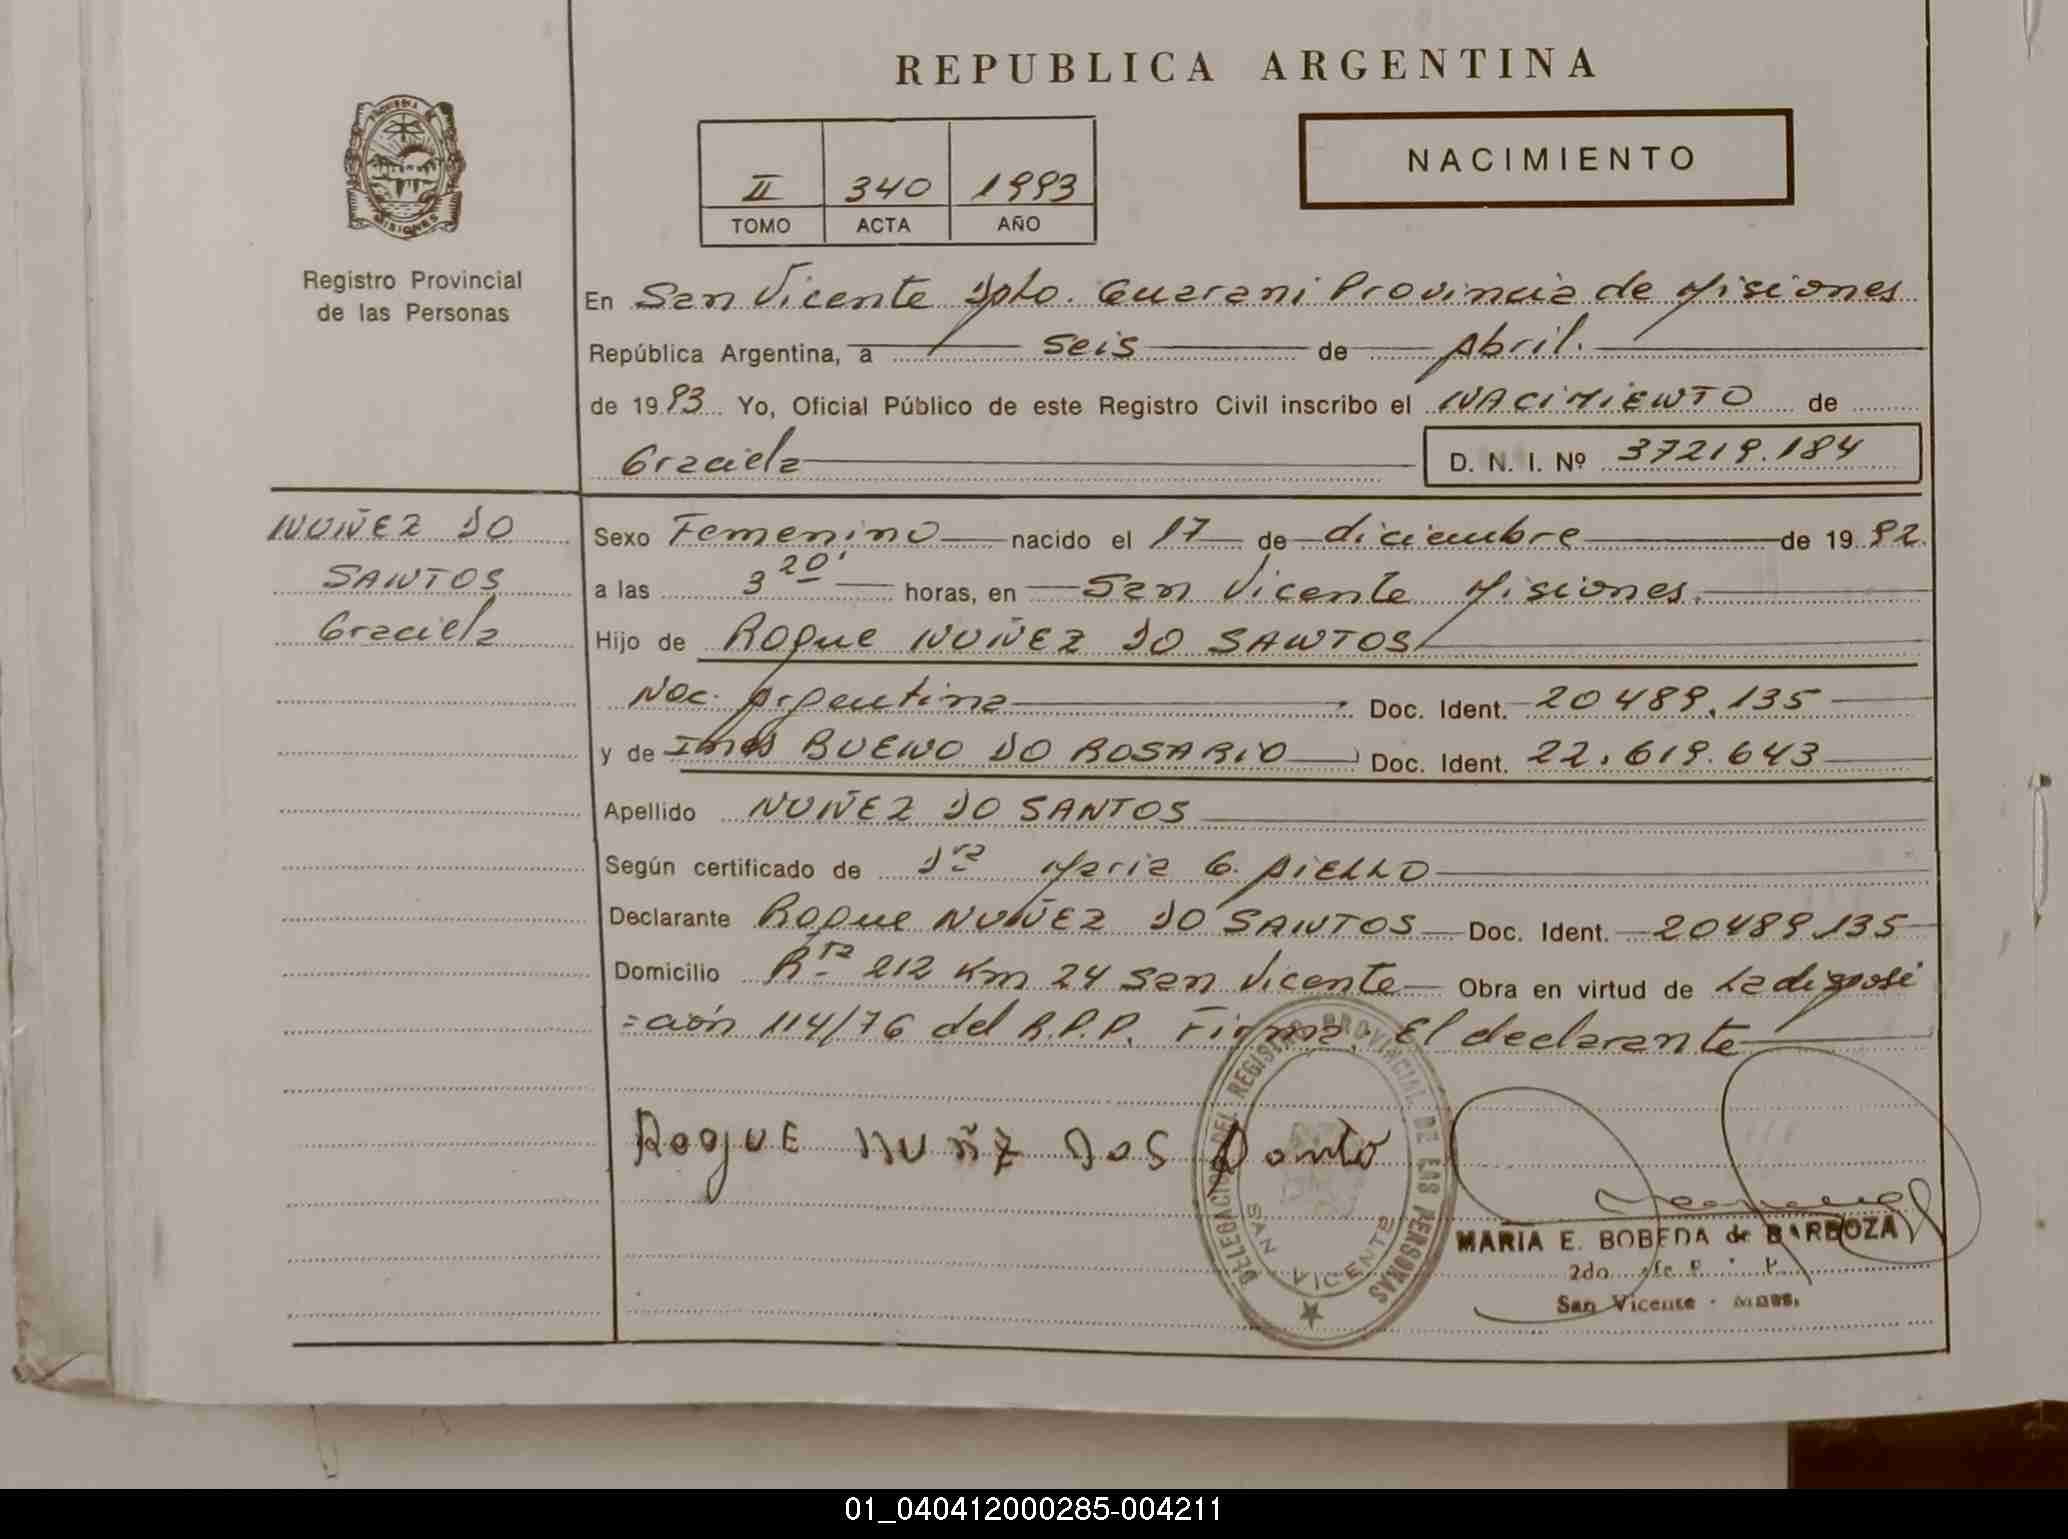 REPUBLICA ARGENTINA
NACIMIENTO
II 340 1993
TOMO ACTA AÑO
MISIONES
Registro Provincial
de las Personas
En San Vicente Dpto. Guarani Provincia de Misiones
República Argentina, a seis de Abril.
de 1993 Yo, Oficial Público de este Registro Civil inscribo el NACIMIENTO de
Graciela D. N. I. Nº 37219.184
NUÑEZ DO
SANTOS
Graciela
Sexo Femenino nacido el 17 de diciembre de 1992.
a las 3 20' horas, en San Vicente Misiones.
Hijo de Roque NUÑEZ DO SANTOS
Nac. Argentina Doc. Ident. 20489.135
y de Ines BUENO DO ROSARIO Doc. Ident. 22.619.643
Apellido NUÑEZ DO SANTOS
Según certificado de Dra Maria G. AIELLO
Declarante Roque NUÑEZ DO SANTOS Doc. Ident. 20489.135
Domicilio Rta 212 Km 24 San Vicente Obra en virtud de La disposi
=ción 114/76 del R.P.P. Firma, El declarante
ROQUE NUÑZ DOS Santo
DELEGACION DEL REGISTRO PROVINCIAL DE LAS PERSONAS
SAN VICENTE
MARIA E. BOBEDA de BARBOZA
2do.
San Vicente - Mnes.
01_040412000285-004211